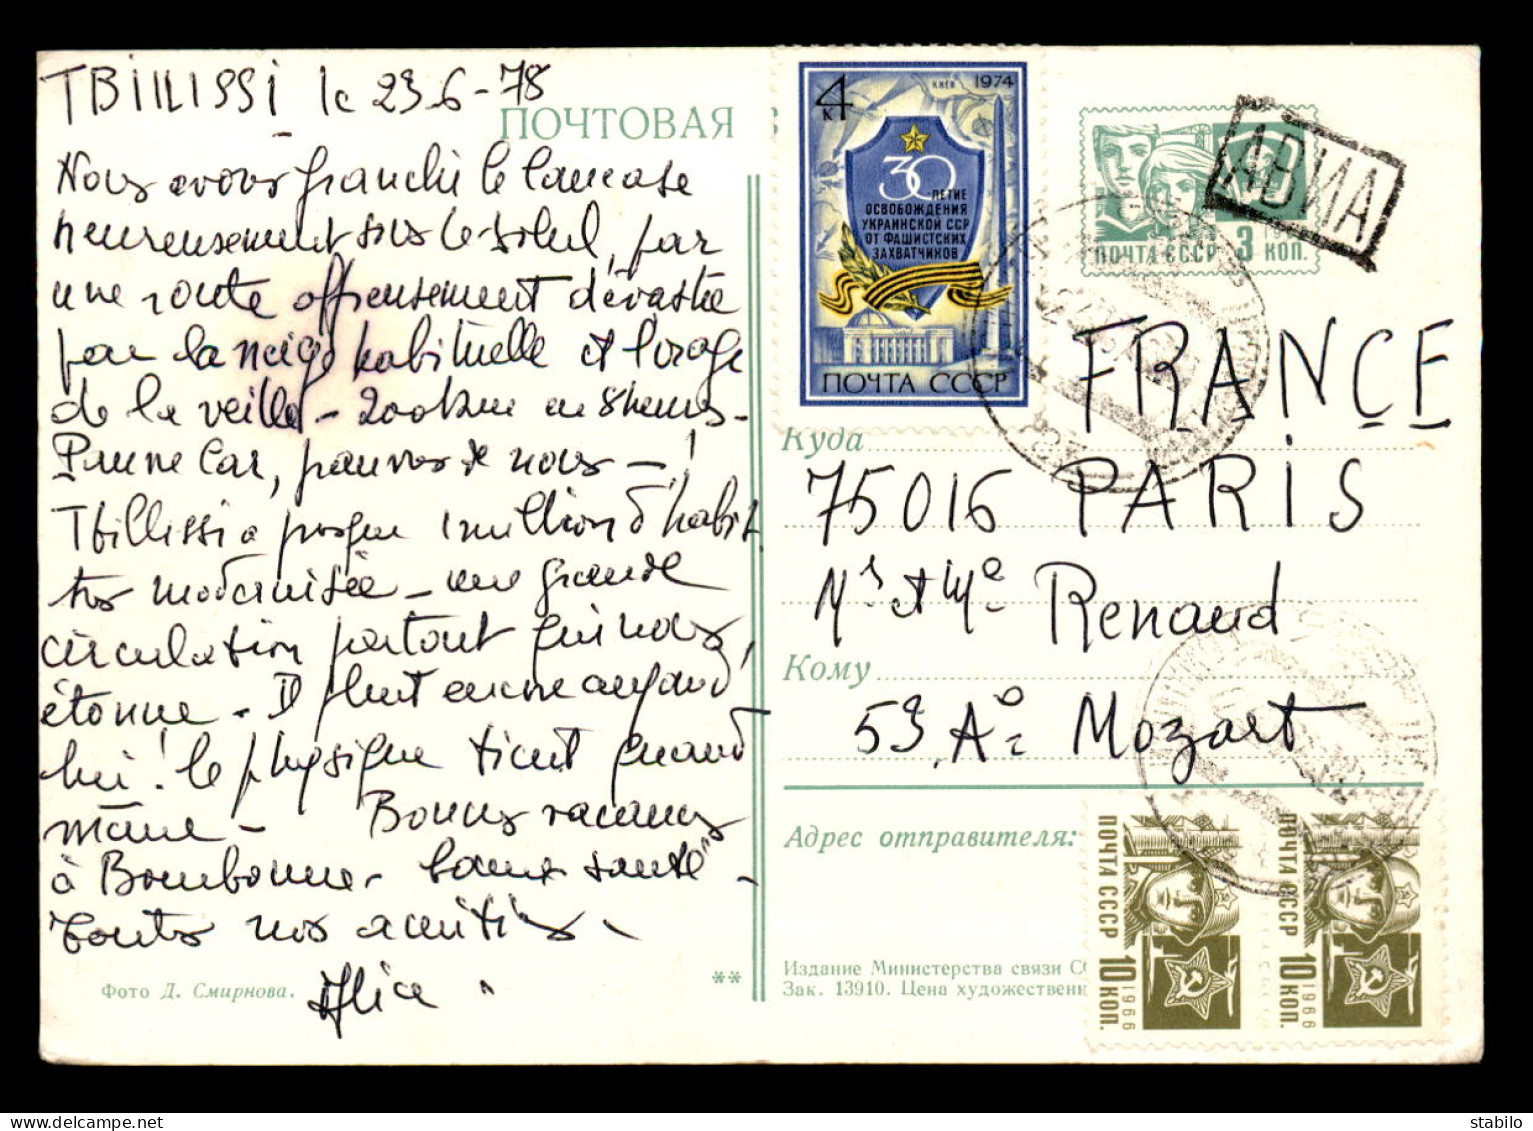 TBILLISSI le 23.6-78
ПОЧТОВАЯ
Nous avons franchi le Caucase
heureusement sous le soleil, par
une route affreusement dévastée
par la neige habituelle et l'orage
de la veille - 200 km en 8 heures -
Pauvre Car, pauvres de nous - !
Tbillissi a presque 1 million d'habit.
très modernisée - une grande
circulation partout qui nous
étonne - Il pleut encore aujourd'
hui ! le physique tient quand
même - Bonnes vacances
à Bourbonne - bonne santé -
toutes nos amitiés.
Alice.
Фото Д. Смирнова.
**
4 к
КИЕВ 1974
30
-ЛЕТИЕ
ОСВОБОЖДЕНИЯ
УКРАИНСКОЙ ССР
ОТ ФАШИСТСКИХ
ЗАХВАТЧИКОВ
ПОЧТА СССР
ПОЧТА СССР 3 КОП.
АВИА
FRANCE
Куда
75016 PARIS
Mr et Me Renaud
Кому
53, Ae Mozart
Адрес отправителя:
Издание Министерства связи С
Зак. 13910. Цена художественн
ПОЧТА СССР 10 КОП. 1966
ПОЧТА СССР 10 КОП. 1966
stampsdelc
delcampe.net